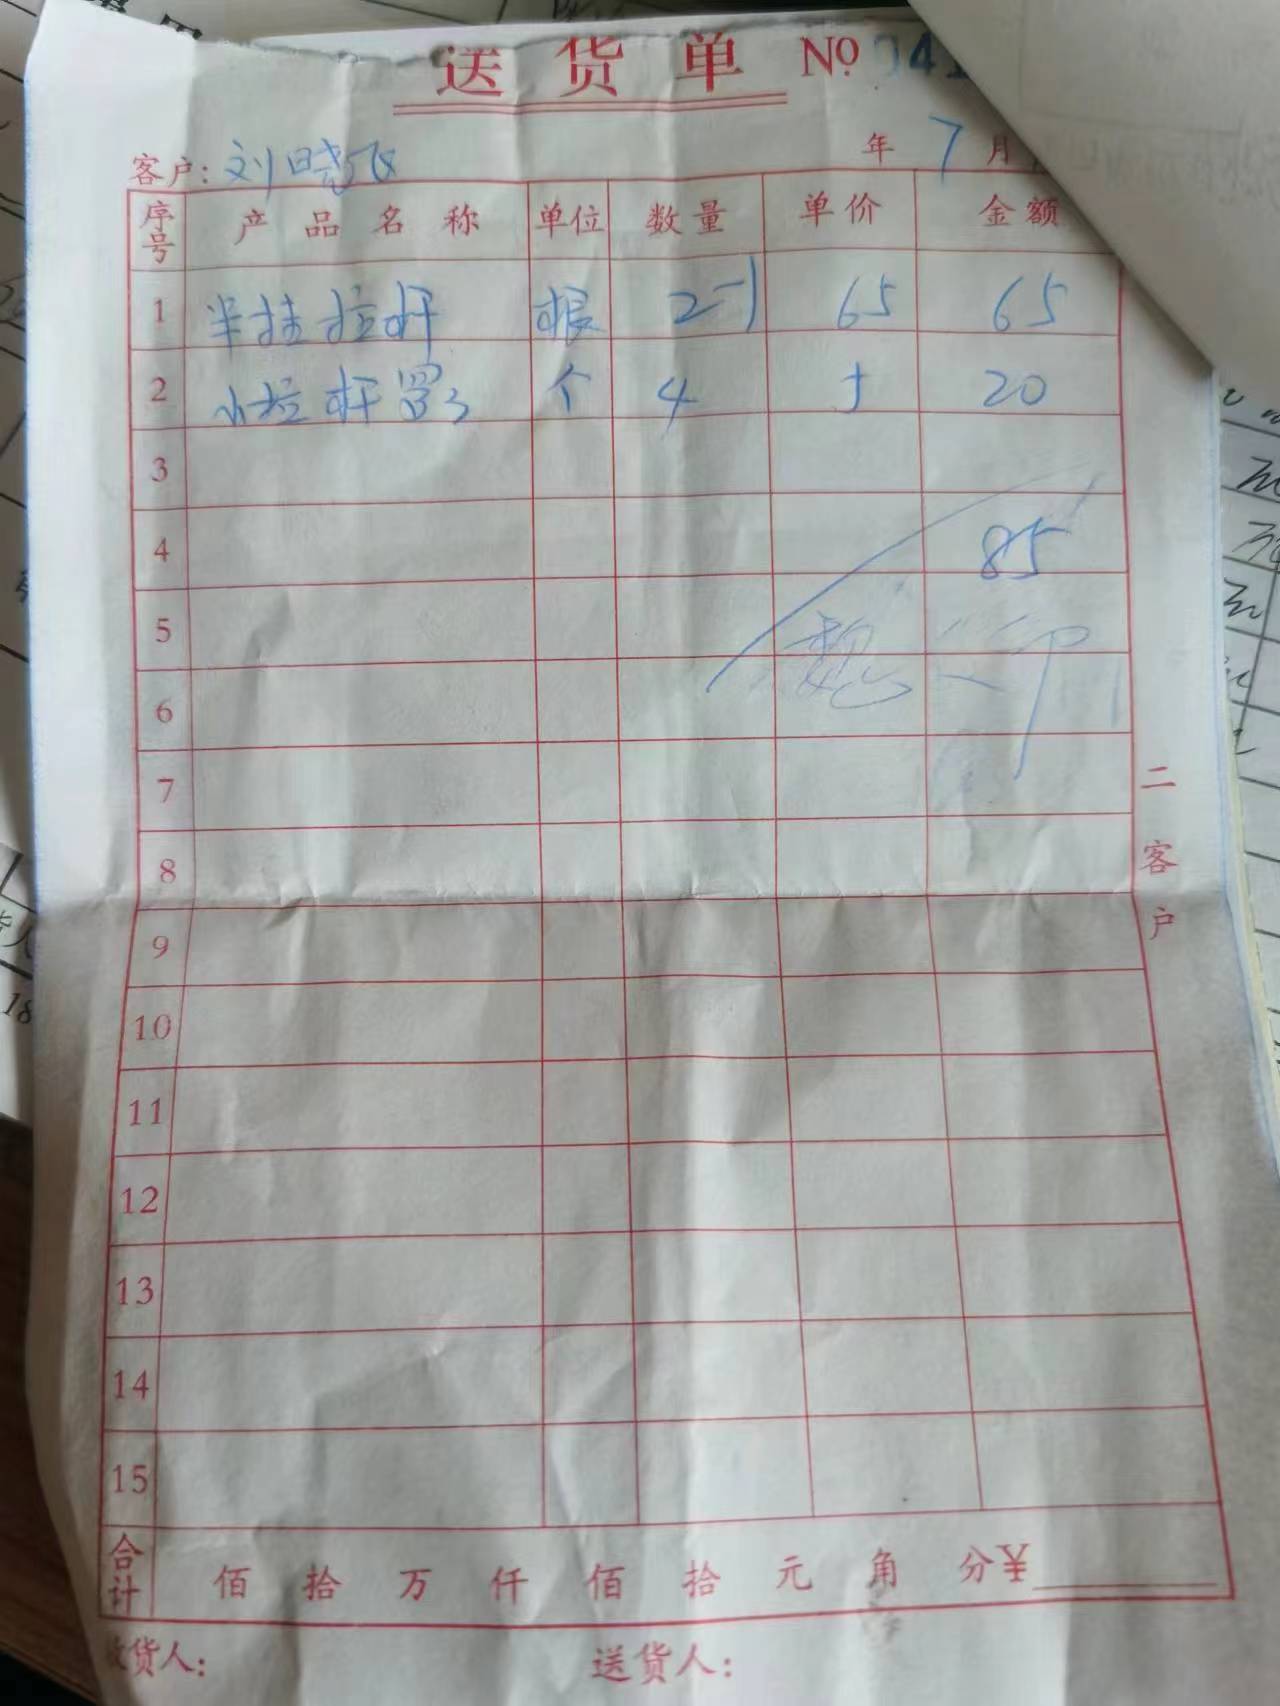 送货单 №041
客户: 刘晓飞 年 7 月
序号 产品名称 单位 数量 单价 金额
1 半挂拉杆 根 2-1 65 65
2 小拉杆 个 4 5 20
3
4 85
5
6
7
8
9
10
11
12
13
14
15
合计 佰 拾 万 仟 佰 拾 元 角 分 ¥
收货人: 送货人:
二客户